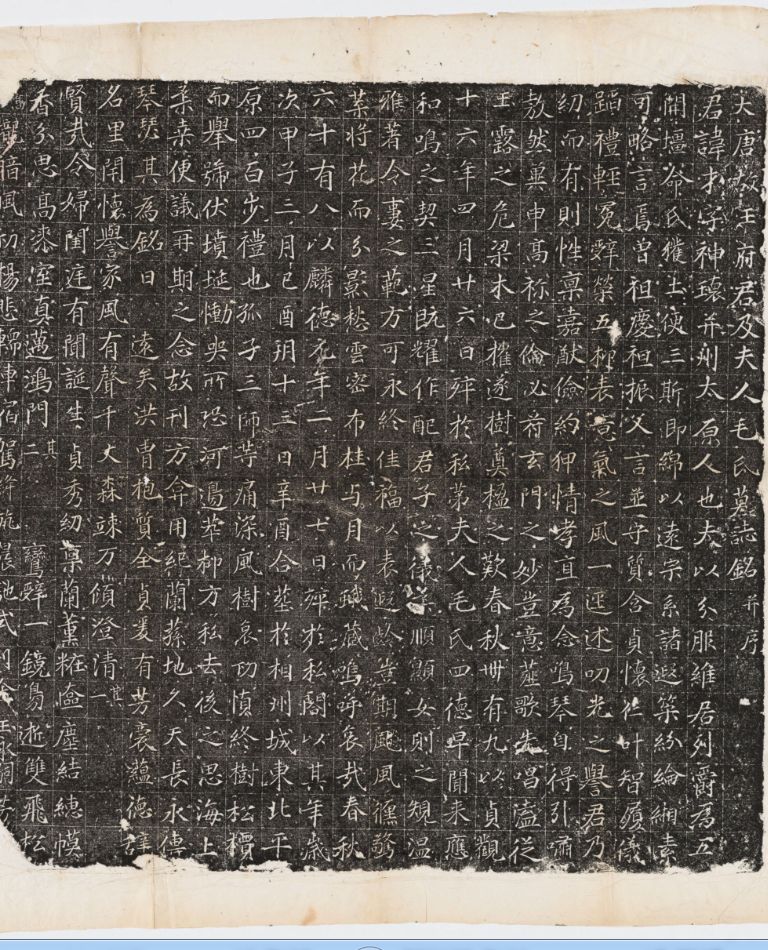 大唐故王府君及夫人毛氏墓誌銘并序
君諱才字神瓌并州太原人也夫以分服維君列爵爲五
開壇命氏攉土使三斯即綿以遠宗系諸遐策紛綸緗素
可略言焉曾祖慶祖振父言並字質含貞懷仁叶智履儀
蹈禮輕冕辭榮五柳表意氣之風一逕述叨光之譽君乃
幼而有則性稟嘉猷儉約狎情孝直爲念鳴琴自得引嘯
敖然冀申高祢之倫必符玄門之妙豈意薤歌先唱溘從
玉露之危梁木已摧遂樹奠楹之歎春秋卌有九以貞觀
十六年四月廿六日殡於私第夫人毛氏四德早聞來應
和鳴之契三星旣耀作配君子之儀柔順顯女則之規温
雅著令妻之範方可永終佳福以表遐齡豈期颷風飄驚
葉將花而分影愁雲密布桂与月而軄藏嗚呼哀哉春秋
六十有八以麟德元年二月廿七日殡於私閣以其年歲
次甲子三月己酉朔十三日辛酉合塟於相州城東北平
原四百步禮也孤子三師等痛深風樹哀切慎終樹松檟
而擧號伏墳埏慟哭所恐河邊華柳方移去後之思海上
柔桒便議再期之念故刊方弁用絕蘭蓀地久天長永傳
琴瑟其爲銘曰 遠矣洪胄抱質全貞爰有芳裔蘊德諱
名里閈懷譽家風有聲千丈森竦万傾澄清其一
賢哉令婦閨遑有聞誕生貞秀幼稟蘭薰粧奩塵結總幙
香分思高柒室真邁鴻門其二 鸞辭一鏡鳧逝雙飛松